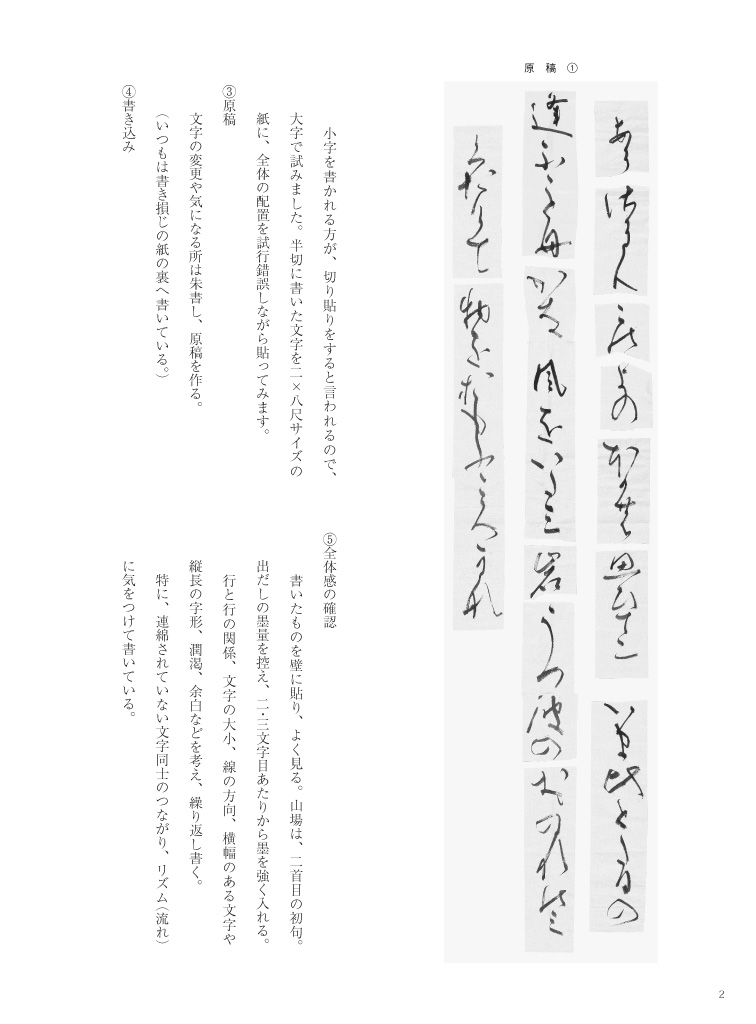 原稿①
あらさらんこのよのほかの思ひてにいま比とたひの
逢ふこともかな風をいたミ岩うつ波のおのれのミ
くたけて物をおもふころかな
小字を書かれる方が、切り貼りをすると言われるので、
大字で試みました。半切に書いた文字を二×八尺サイズの
紙に、全体の配置を試行錯誤しながら貼ってみます。
③原稿
文字の変更や気になる所は朱書し、原稿を作る。
（いつもは書き損じの紙の裏へ書いている。）
④書き込み
⑤全体感の確認
書いたものを壁に貼り、よく見る。山場は、二首目の初句。
出だしの墨量を控え、二・三文字目あたりから墨を強く入れる。
行と行の関係、文字の大小、線の方向、横幅のある文字や
縦長の字形、潤渇、余白などを考え、繰り返し書く。
特に、連綿されていない文字同士のつながり、リズム（流れ）
に気をつけて書いている。
2